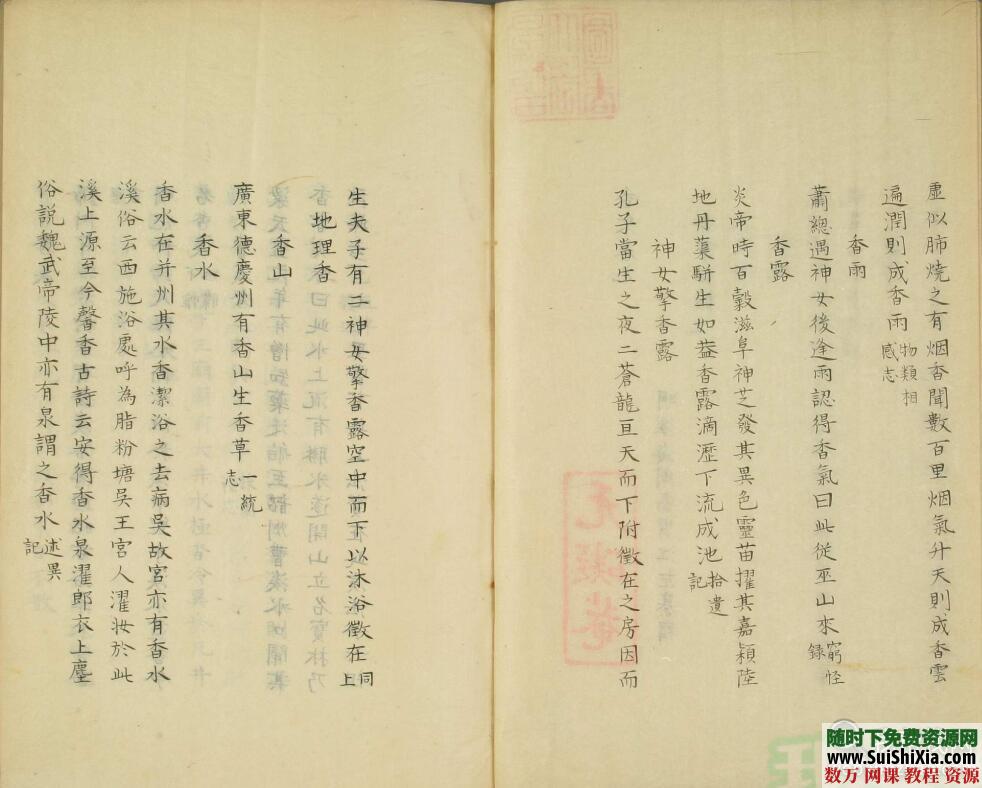 虛似肺燒之有烟香聞數百里烟氣升天則成香雲
遍潤則成香雨物類相感志
香雨
蕭總遇神女後逢雨認得香氣曰此從巫山來窮怪錄
香露
炎帝時百穀滋阜神芝發其異色靈苗擢其嘉穎陸
地丹蕖駢生如葢香露滴瀝下流成池拾遺記
神女擎香露
孔子當生之夜二蒼龍亘天而下附徵在之房因而
生夫子有二神女擎香露空中而下以沐浴徵在同上
地理香
香山
廣東德慶州有香山生香草一統志
香水
香水在并州其水香潔浴之去病吳故宮亦有香水
溪俗云西施浴處呼為脂粉塘吳王宮人濯妝於此
溪上源至今馨香古詩云安得香水泉濯郎衣上塵
俗說魏武帝陵中亦有泉謂之香水述異記
随时下免费资源网
www.SuiShiXia.com
数万 网课 教程 资源